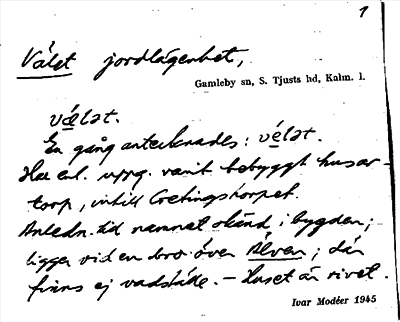 1
Vålet jordlägenhet,
Gamleby sn, S. Tjusts hd, Kalm. l.
vǽlət.
En gång antecknades: vélət.
Har enl. uppg. varit bebyggt husar-
torp, intill Gretingstorpet.
Anledn. till namnet okänd i bygden;
ligger vid en bro över Älven; där
finns ej vadställe. – Huset är rivet.
Ivar Modéer 1945